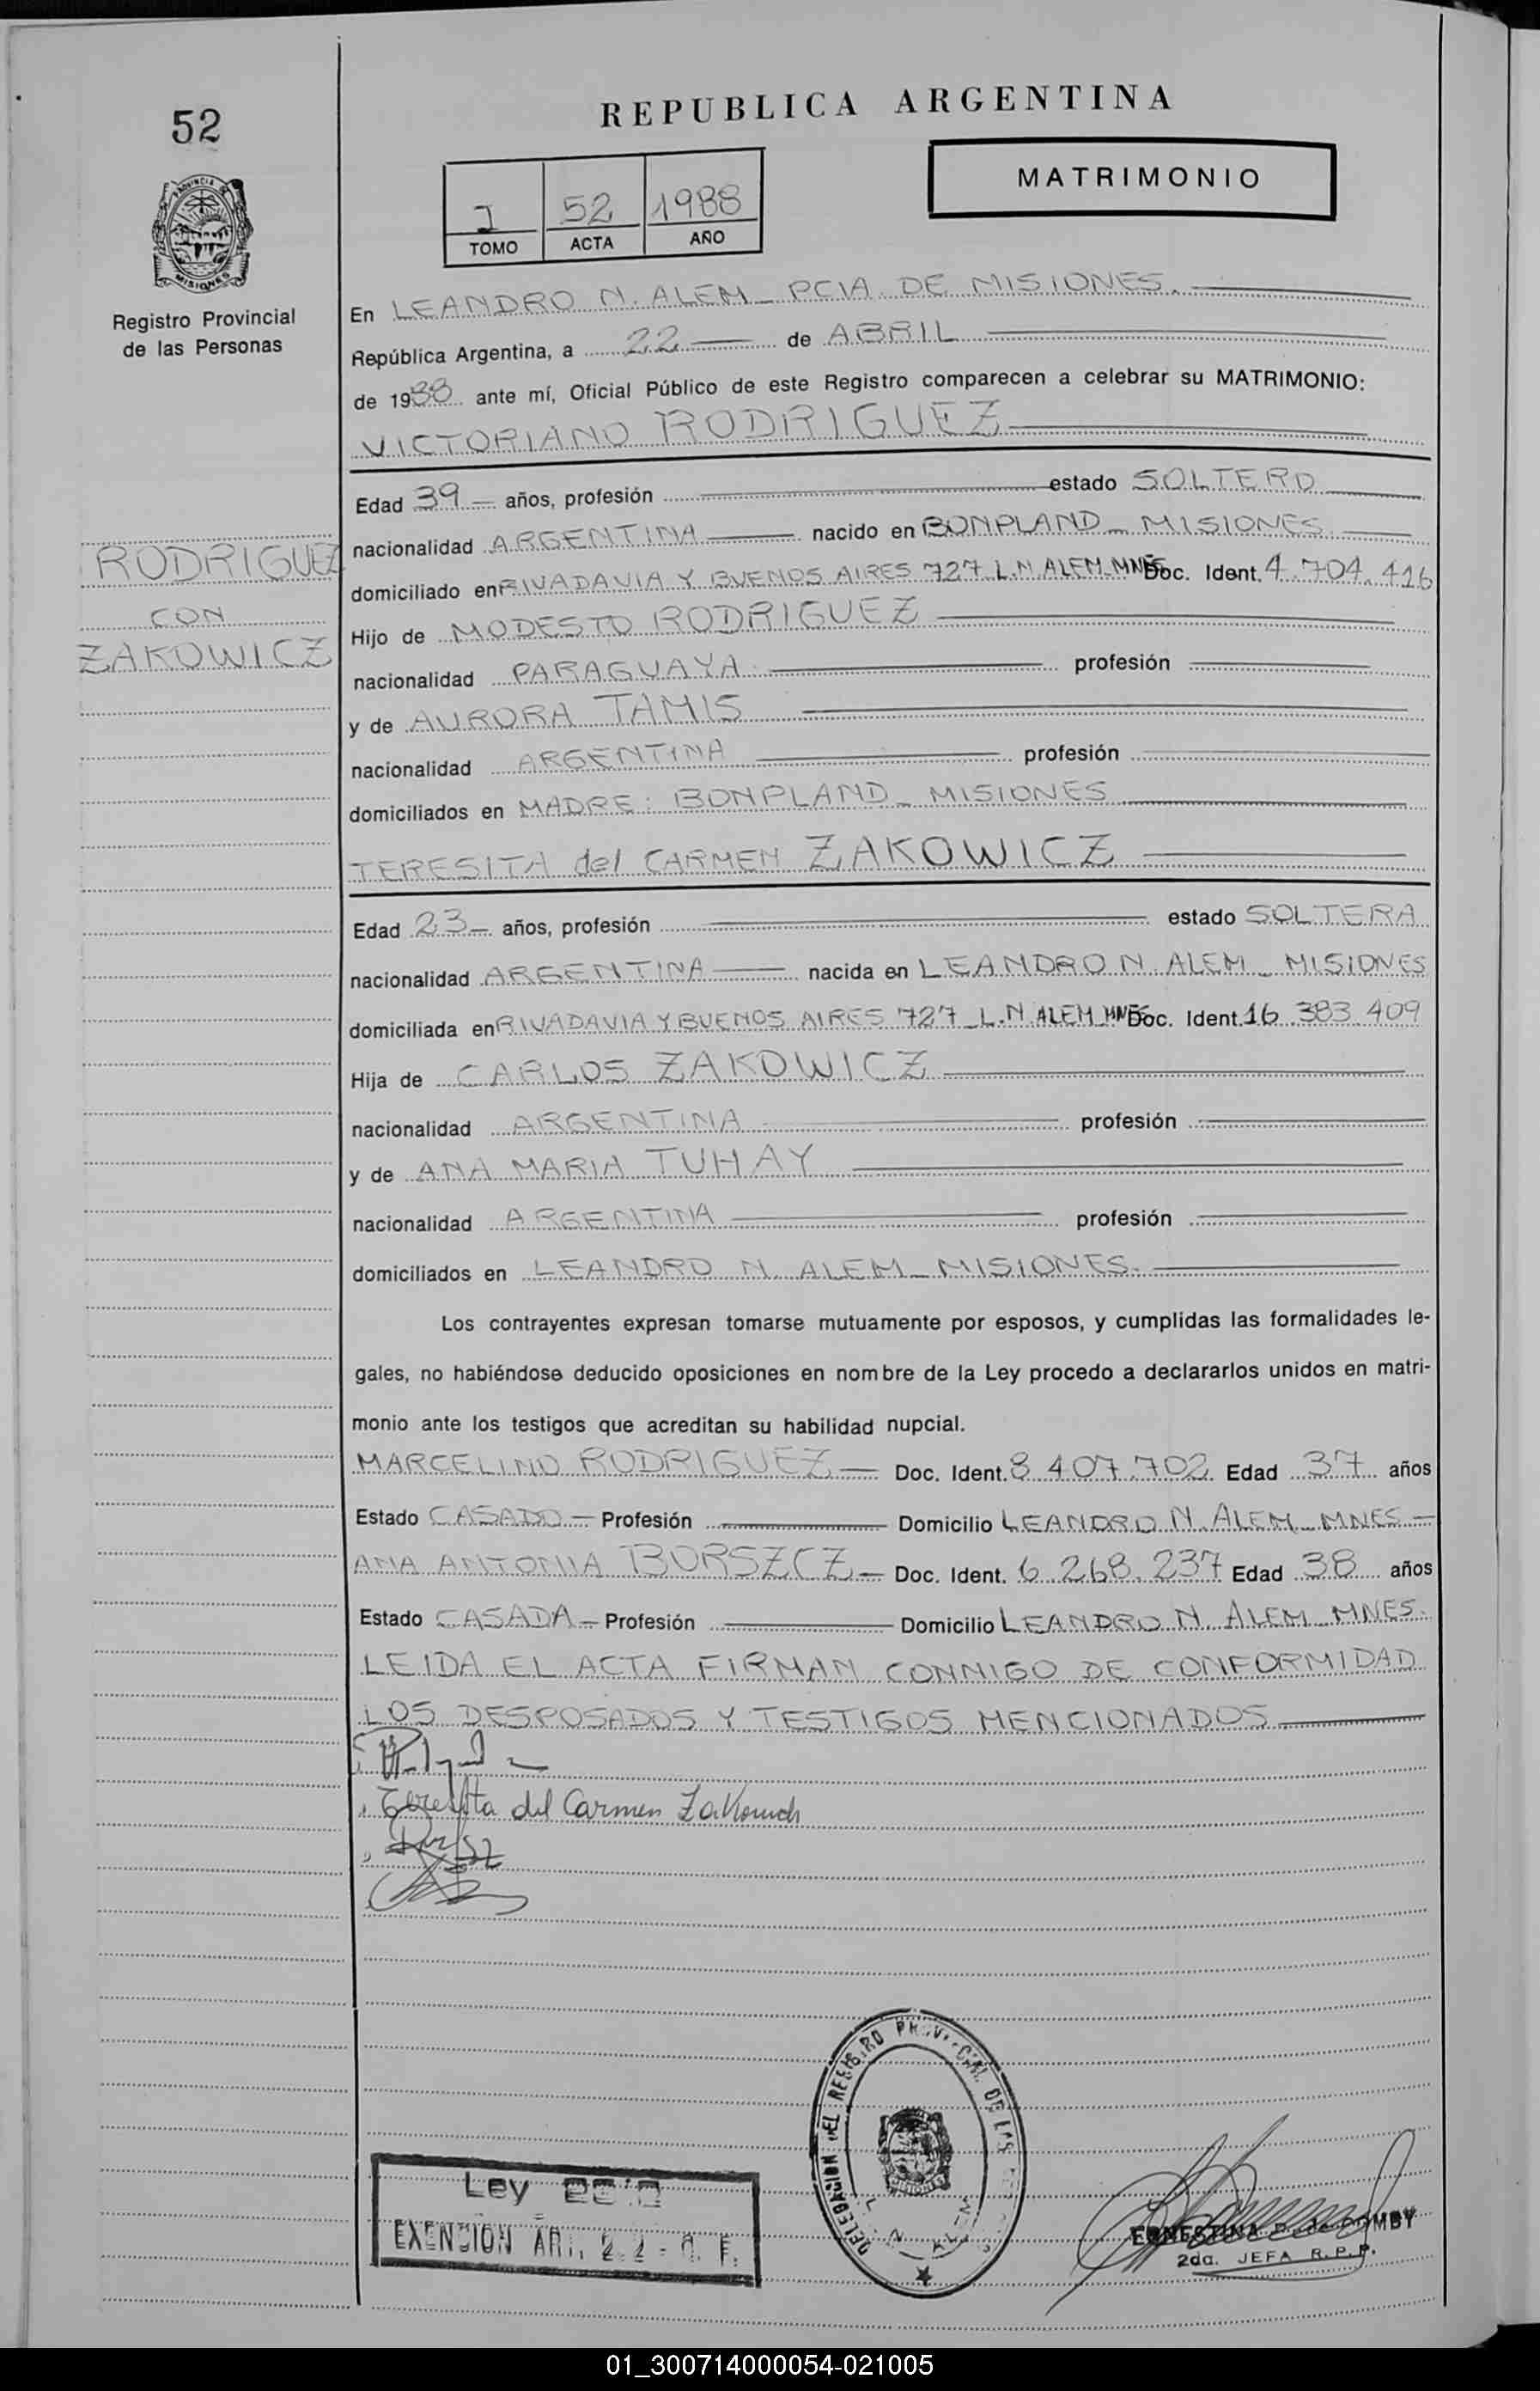 52
REPUBLICA ARGENTINA
MATRIMONIO
I 52 1988
TOMO ACTA AÑO
PROVINCIA DE
MISIONES
Registro Provincial
de las Personas
En LEANDRO N. ALEM - PCIA. DE MISIONES.
República Argentina, a 22 de ABRIL
de 1988 ante mí, Oficial Público de este Registro comparecen a celebrar su MATRIMONIO:
VICTORIANO RODRIGUEZ
Edad 39 años, profesión estado SOLTERO
RODRIGUEZ
CON
ZAKOWICZ
nacionalidad ARGENTINA nacido en BONPLAND - MISIONES
domiciliado en RIVADAVIA Y BUENOS AIRES 727 L.N. ALEM MNES Doc. Ident. 4.704.416
Hijo de MODESTO RODRIGUEZ
nacionalidad PARAGUAYA profesión
y de AURORA TAMIS
nacionalidad ARGENTINA profesión
domiciliados en MADRE: BONPLAND - MISIONES
TERESITA del CARMEN ZAKOWICZ
Edad 23 años, profesión estado SOLTERA
nacionalidad ARGENTINA nacida en LEANDRO N. ALEM - MISIONES
domiciliada en RIVADAVIA Y BUENOS AIRES 727 - L.N. ALEM MNES Doc. Ident. 16.383.409
Hija de CARLOS ZAKOWICZ
nacionalidad ARGENTINA profesión
y de ANA MARIA TUHAY
nacionalidad ARGENTINA profesión
domiciliados en LEANDRO N. ALEM - MISIONES.
Los contrayentes expresan tomarse mutuamente por esposos, y cumplidas las formalidades le-
gales, no habiéndose deducido oposiciones en nombre de la Ley procedo a declararlos unidos en matri-
monio ante los testigos que acreditan su habilidad nupcial.
MARCELINO RODRIGUEZ - Doc. Ident. 8.407.702 Edad 37 años
Estado CASADO - Profesión Domicilio LEANDRO N. ALEM - MNES -
ANA ANTONIA BORSZCZ - Doc. Ident. 6.268.237 Edad 38 años
Estado CASADA - Profesión Domicilio LEANDRO N. ALEM - MNES.
LEIDA EL ACTA FIRMAN CONMIGO DE CONFORMIDAD
LOS DESPOSADOS Y TESTIGOS MENCIONADOS
Teresita del Carmen Zakowicz
DELEGACION DEL REGISTRO PROVINCIAL DE LAS
L. N. ALEM
MISIONES
Ley
EXENCION ART. 22 - C. F.
ERNESTINA P. de DOMBY
2da. JEFA R.P.P.
01_300714000054-021005